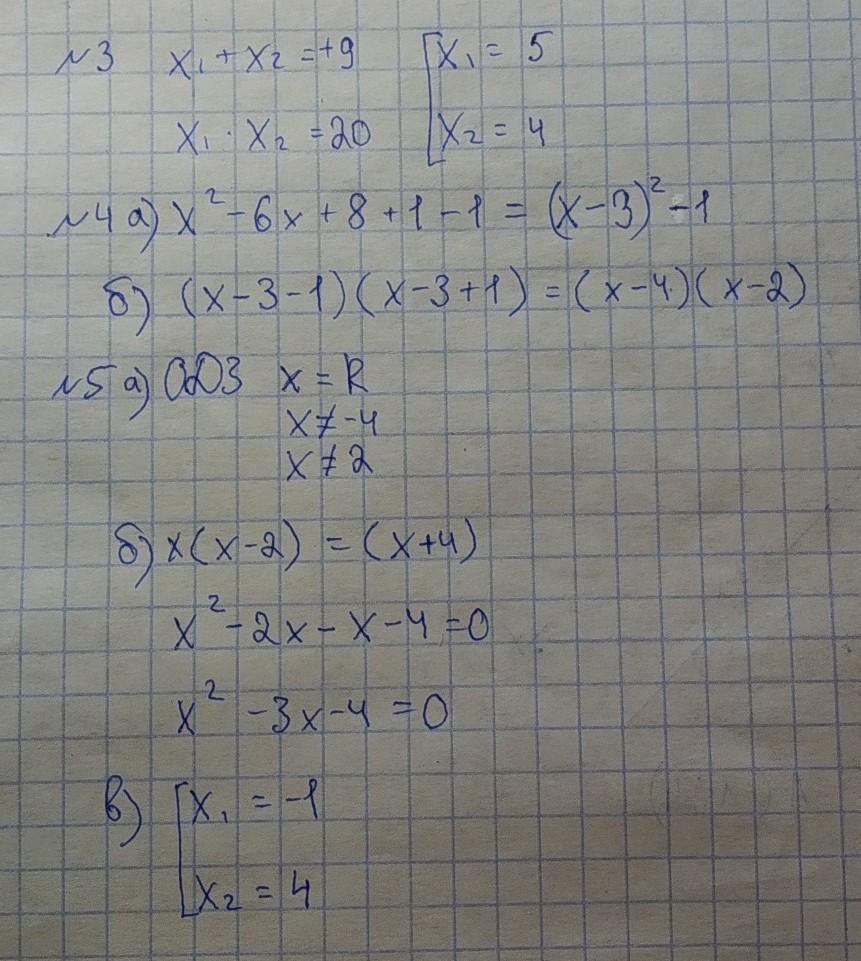 №3 x₁ + x₂ = +9 [x₁ = 5
x₁ · x₂ = 20 [x₂ = 4
№4 а) x² - 6x + 8 + 1 - 1 = (x - 3)² - 1
б) (x - 3 - 1)(x - 3 + 1) = (x - 4)(x - 2)
№5 а) ОДЗ x = R
x ≠ -4
x ≠ 2
б) x(x - 2) = (x + 4)
x² - 2x - x - 4 = 0
x² - 3x - 4 = 0
в) [x₁ = -1
[x₂ = 4